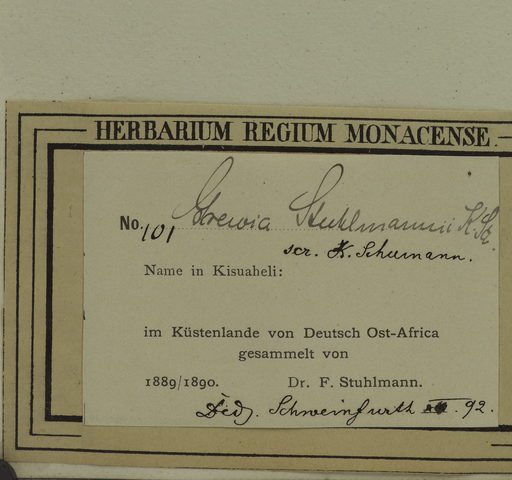 HERBARIUM REGIUM MONACENSE.
No. 101 Grewia Stuhlmannii K. Sch.
scr. K. Schumann.
Name in Kisuaheli:
im Küstenlande von Deutsch Ost-Africa
gesammelt von
1889/1890. Dr. F. Stuhlmann.
Ded. Schweinfurth . 92.